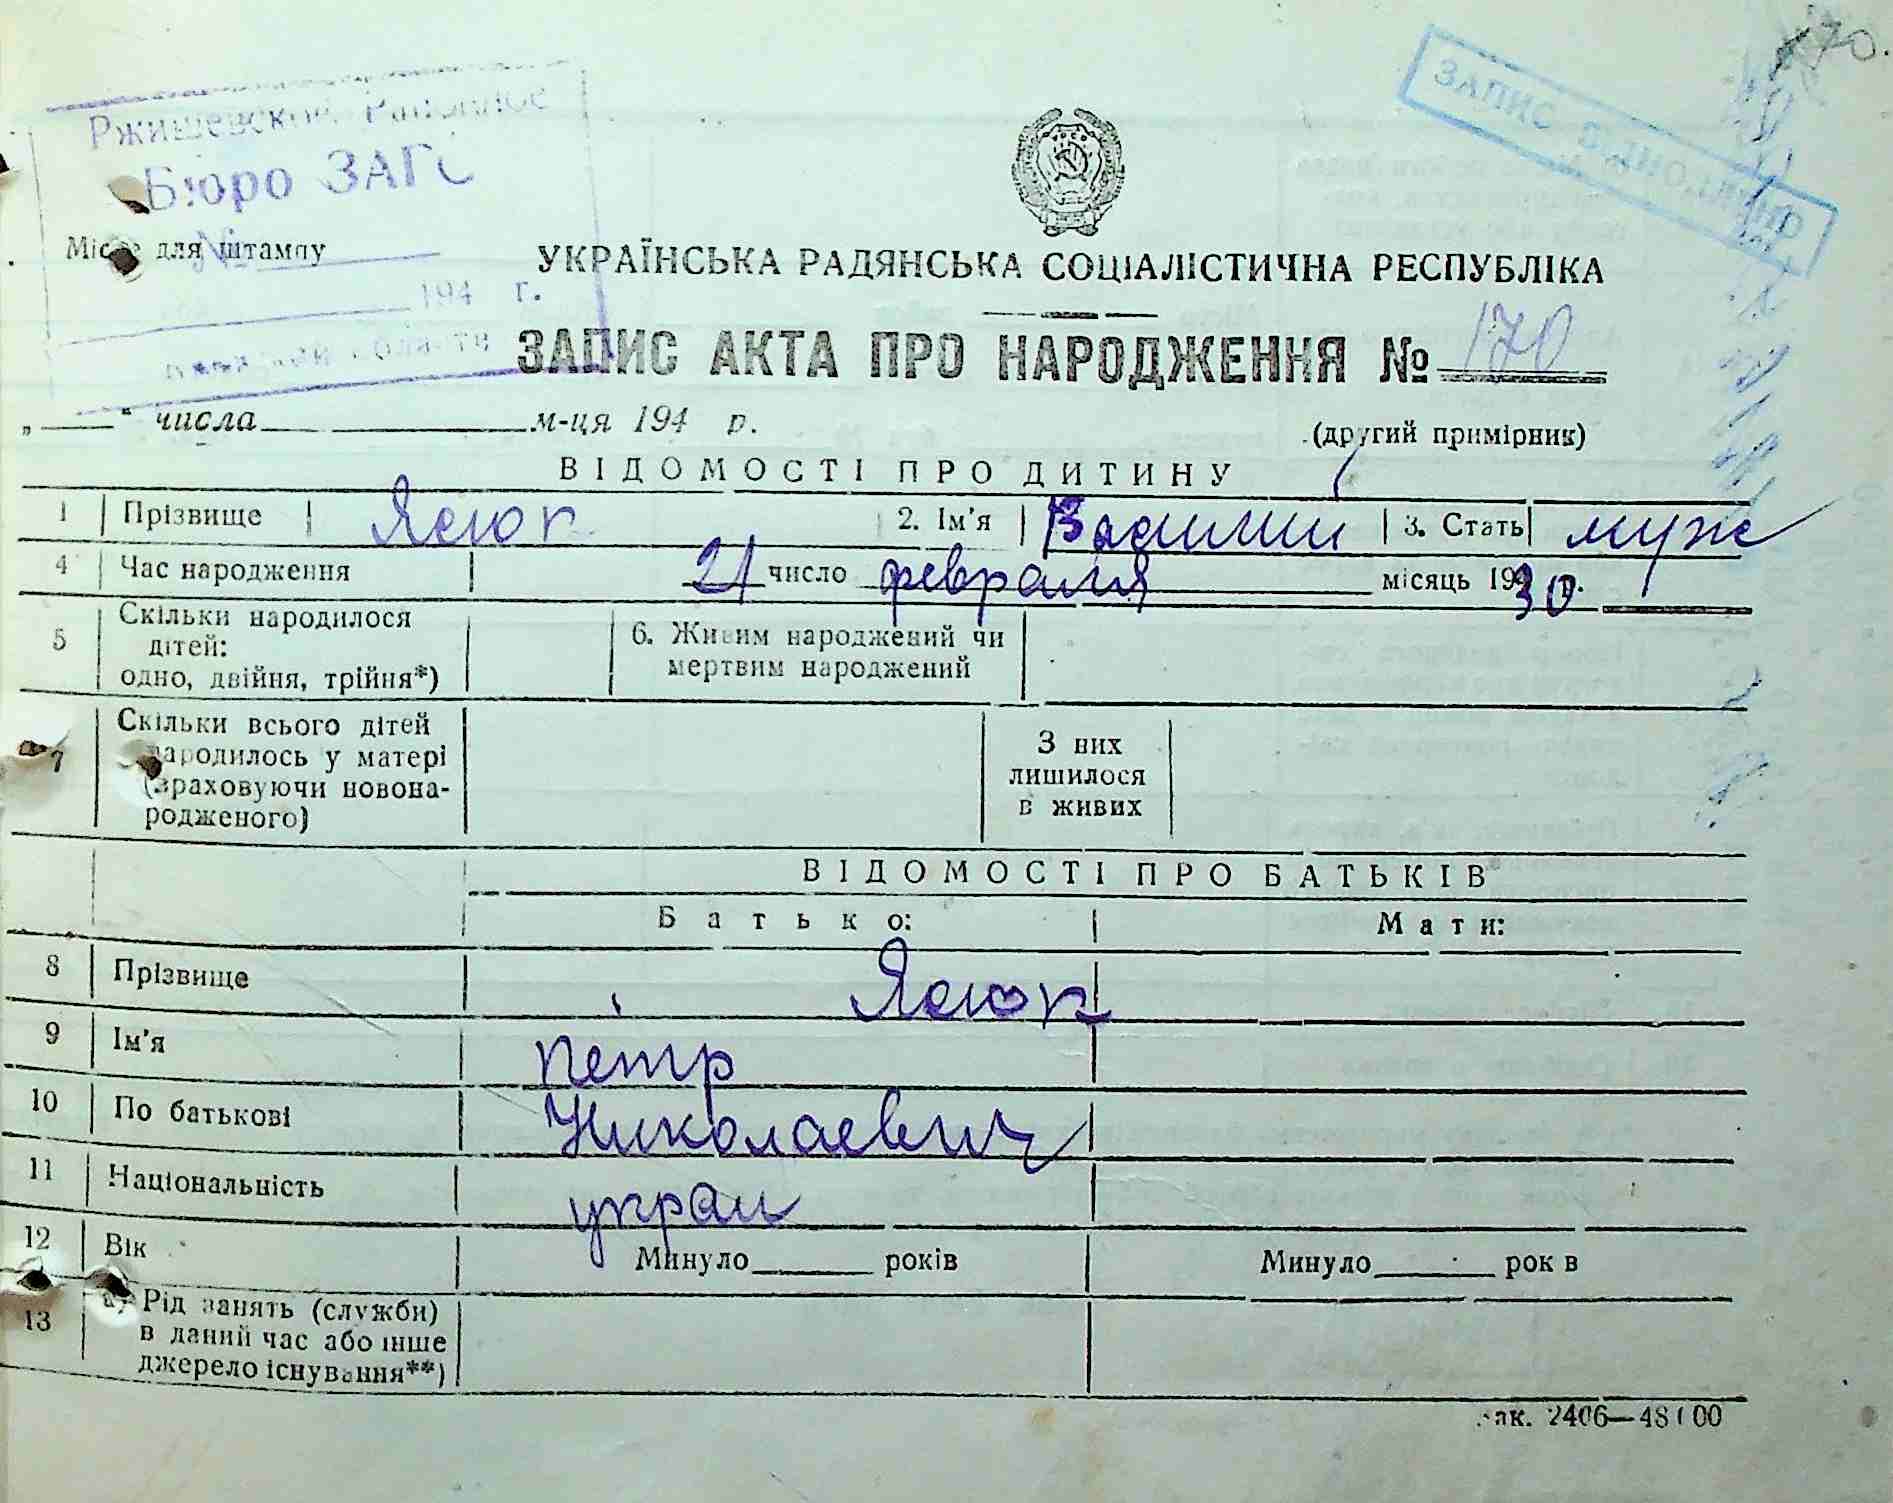 170.
Ржищевское Районное
Бюро ЗАГС
№
194 г.
ЗАПИС
Місце для штампу
УКРАЇНСЬКА РАДЯНСЬКА СОЦІАЛІСТИЧНА РЕСПУБЛІКА
ЗАПИС АКТА ПРО НАРОДЖЕННЯ № 170
„ “ числа м-ця 194 р.
(другий примірник)
ВІДОМОСТІ ПРО ДИТИНУ
1 Прізвище Ясюк 2. Ім'я 3. Стать муж
4 Час народження 21 число февраля місяць 1930 р.
5 Скільки народилося
дітей:
одно, двійня, трійня*)
6. Живим народжений чи
мертвим народжений
7 Скільки всього дітей
народилось у матері
(враховуючи новона-
родженого)
З них
лишилося
в живих
ВІДОМОСТІ ПРО БАТЬКІВ
Батько: Мати:
8 Прізвище Ясюк
9 Ім'я Петр
10 По батькові Николаевич
11 Національність украи
12 Вік Минуло років Минуло років
13 а) Рід занять (служби)
в даний час або інше
джерело існування**)
Зак. 2406—48100